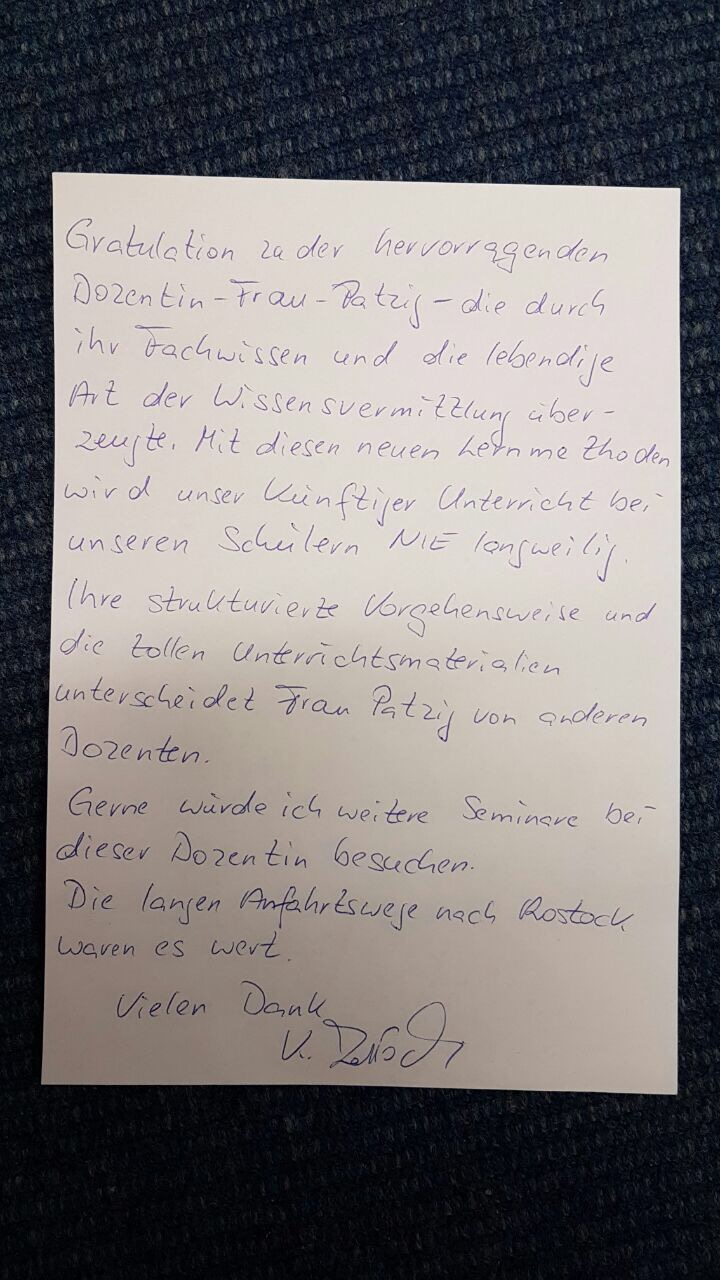 Gratulation zu der hervorragenden
Dozentin - Frau - Patzig - die durch
ihr Fachwissen und die lebendige
Art der Wissensvermittlung über-
zeugte. Mit diesen neuen Lernmethoden
wird unser künftiger Unterricht bei
unseren Schülern NIE langweilig.
Ihre strukturierte Vorgehensweise und
die tollen Unterrichtsmaterialien
unterscheidet Frau Patzig von anderen
Dozenten.
Gerne würde ich weitere Seminare bei
dieser Dozentin besuchen.
Die langen Anfahrtswege nach Rostock
waren es wert.
Vielen Dank
K.